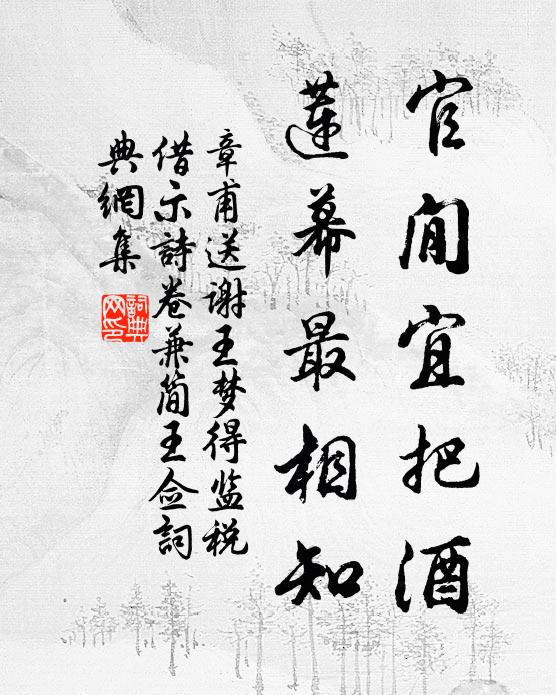 官閒宜把酒
蓮幕最相知
章甫送谢王梦得监税
借示詩卷兼简王佥詞
典網集
詞典網印